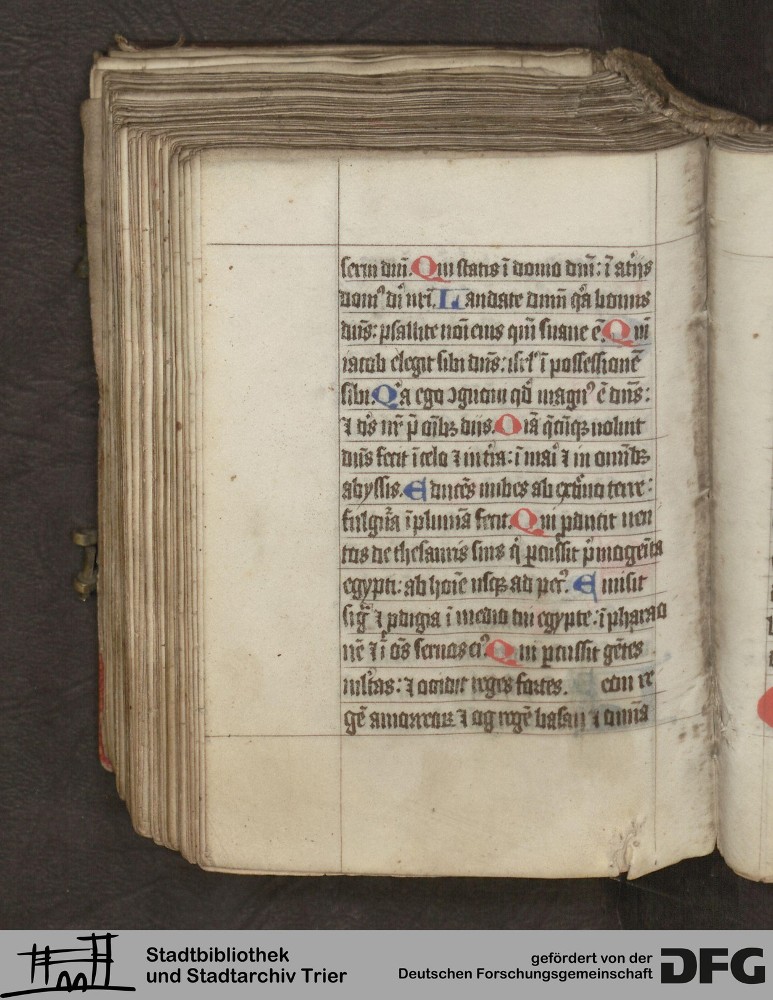 serui dn̄i. Qui statis ī domo dn̄i: ī atrijs
domꝰ di nr̄i. Laudate dn̄m qa bonus
dn̄s: psallite noī eius qm̄ suaue ē. Qm̄
iacob elegit sibi dn̄s: isrl̓ ī possessionē
sibi. Qa ego ꝯgnoui qd̓ magnꝰ ē dn̄s:
⁊ ds̓ nr̄ p̄ oīb; dijs. Oīa q̄cūq; uoluit
dn̄s fecit ī celo ⁊ in tr̄a: ī mari ⁊ in omīb;
abyssis. Educēs nubes ab extremo terre:
fulgura ī pluuiā fecit. Qui ꝓducit uen
tos de thesauris suis q̇ ꝑcussit p̄mogeīta
egypti: ab hoīe usq; ad pecꝰ. Emisit
siḡ ⁊ ꝓdigia ī medio tui egypte: ī pharao
nē ⁊ ī oēs seruos eiꝰ. Qui ꝑcussit gētes
multas: ⁊ occidit reges fortes. eon re
gē amorreoꝝ ⁊ og regē basan ⁊ omīa
Stadtbibliothek
und Stadtarchiv Trier
gefördert von der
Deutschen Forschungsgemeinschaft
DFG